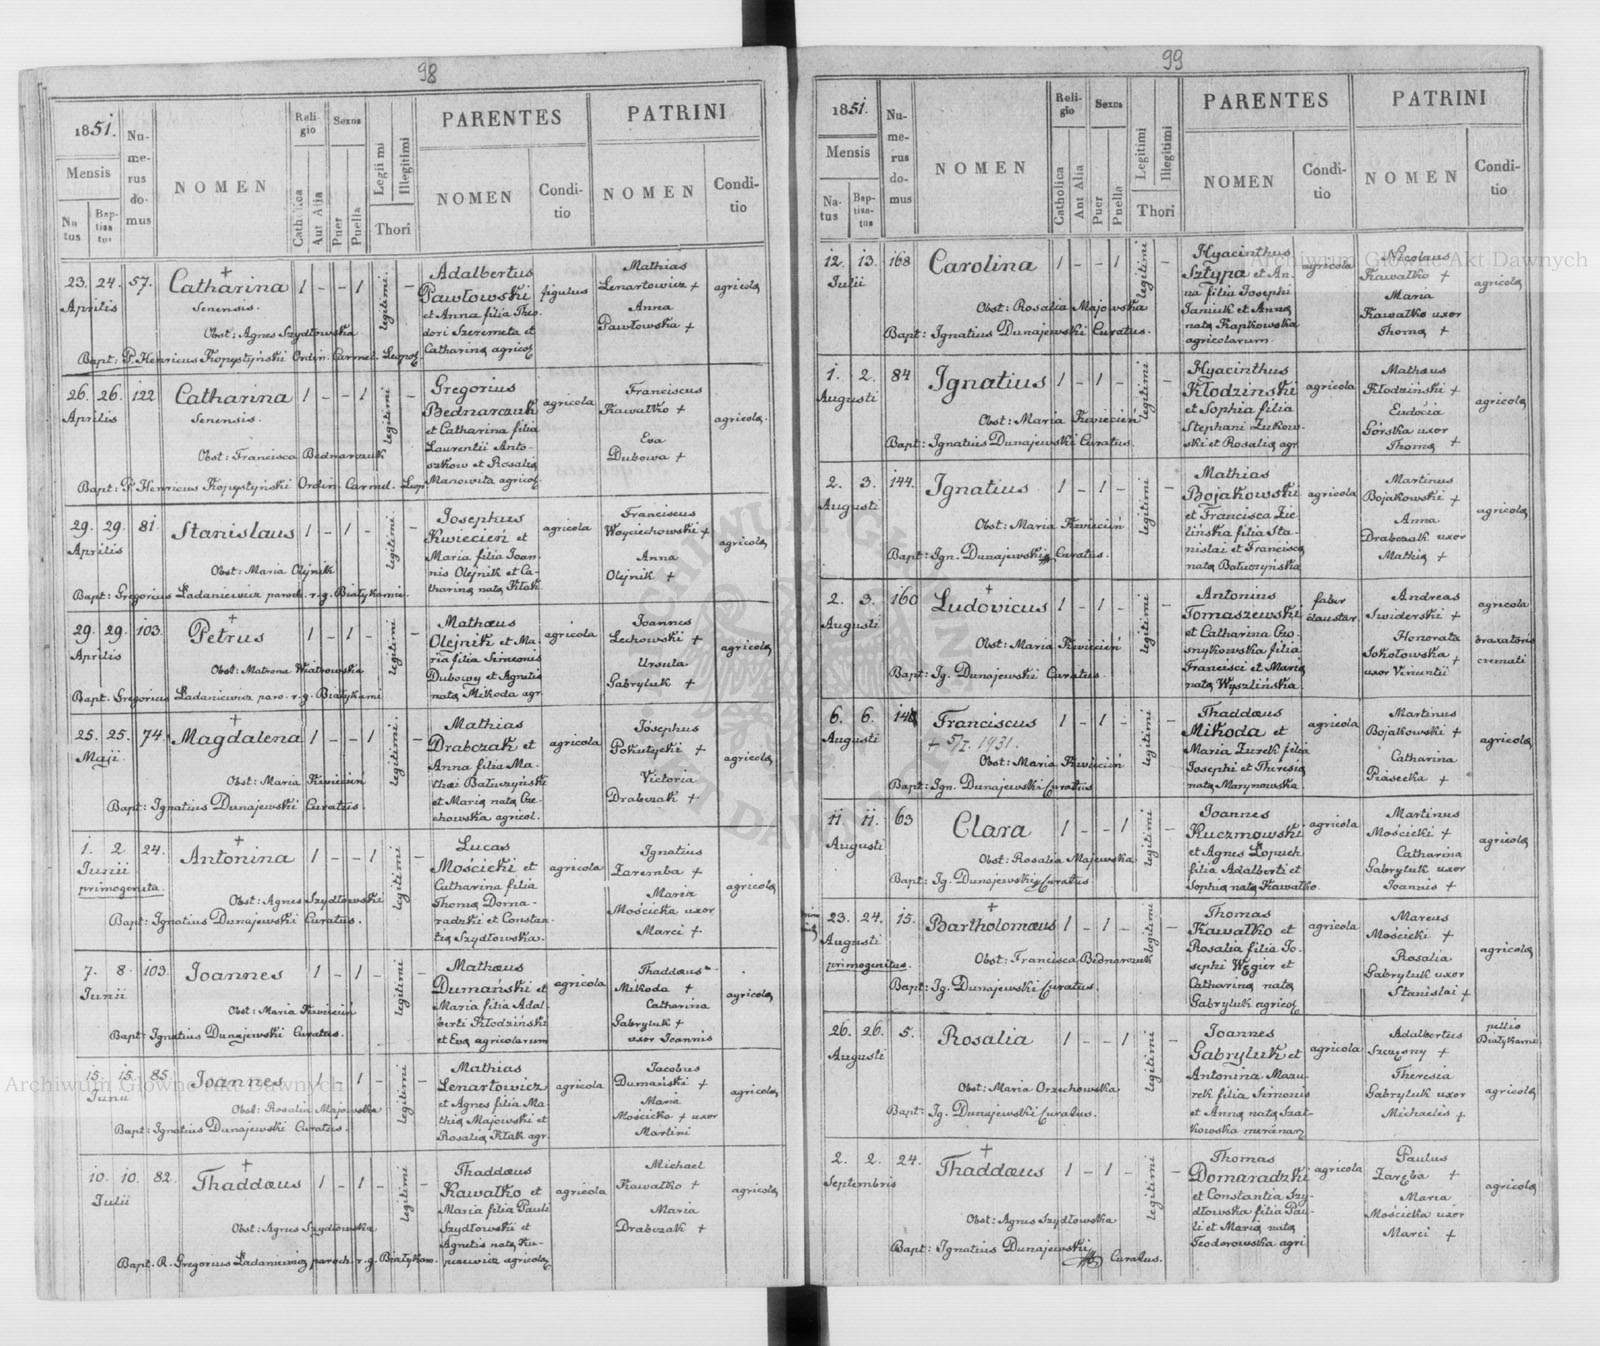 98
1851.
Mensis
Na
tus
Bap-
tisa
tus
Nu-
me-
rus
do-
mus
NOMEN
Reli
gio
Catholica
Aut Alia
Sexus
Puer
Puella
Legitimi
Illegitimi
Thori
PARENTES
NOMEN
Condi-
tio
PATRINI
NOMEN
Condi-
tio
23. 24. 57. Catharina 1 - - 1 legitimi. -
Aprilis Senensis.
Obst: Agnes Szydłowska
Bapt: P. Henricus Kopystyński Ordin. Carmel. Leopol.
Adalbertus
Pawłowski
et Anna filia Theo
dori Szeremeta et
Catharina agricol.
figulus
Mathias
Lenartowicz +
Anna
Pawłowska +
agricola
26. 26. 122 Catharina 1 - - 1 legitimi -
Aprilis Senensis.
Obst: Francisca Bednarczuk
Bapt: P. Henricus Kopystyński Ordin. Carmel. Leop.
Gregorius
Bednarczuk
et Catharina filia
Laurentii Anto-
szkow et Rosalia
Manowita agricol.
agricola
Franciscus
Kawałko +
Eva
Dubowa +
agricola.
29. 29. 81. Stanislaus 1 - 1 - legitimi -
Aprilis
Obst: Maria Olejnik
Bapt: Gregorius Ładaniewicz paroch. r. g. Białykamie.
Josephus
Kwiecień et
Maria filia Joan-
nis Olejnik et Ca-
tharina nata Kłak
agricola
Franciscus
Woyciechowski +
Anna
Olejnik +
agricola
29. 29. 103. Petrus 1 - 1 - legitimi -
Aprilis
Obst: Matrona Wiatrowska
Bapt: Gregorius Ładaniewicz paro. r. g. Białykami
Mathæus
Olejnik et Ma-
ria filia Simeonis
Dubowy et Agnetis
nata Mikoda agr.
agricola
Joannes
Lechowski +
Ursula
Gabryluk +
agricola
25. 25. 74. Magdalena 1 - - 1 legitimi. -
Maji.
Obst: Maria Kwiecień
Bapt: Ignatius Dunajewski Curatus.
Mathias
Drabczak et
Anna filia Ma-
thæi Bałuczyński
et Maria nata Cze-
chowska agricol.
agricola
Josephus
Pokutycki +
Victoria
Drabczak +
agricola
1. 2 24. Antonina 1 - - 1 legitimi -
Junii
primogenita.
Obst: Agnes Szydłowski
Bapt: Ignatius Dunajewski Curatus.
Lucas
Mościcki et
Catharina filia
Thoma Doma-
radzki et Constan-
tia Szydłowska.
agricola
Ignatius
Zaremba +
Maria
Mościcka uxor
Marci +
agricola
7. 8. 103. Joannes 1 - 1 - legitimi -
Junii
Obst: Maria Kwiecień
Bapt: Ignatius Dunajewski Curatus.
Mathæus
Dumański et
Maria filia Adal
berti Kłodziński
et Eva agricolarum
agricola
Thaddæus
Mikoda +
Catharina
Gabryluk +
uxor Joannis
agricola
15. 15. 85. Joannes 1 - 1 - legitimi -
Junii
Obst: Rosalia Majowska
Bapt: Ignatius Dunajewski Curatus.
Mathias
Lenartowicz
et Agnes filia Ma-
thia Majowski et
Rosalia Kłak agr.
agricola
Jacobus
Dumański +
Maria
Mościcka + uxor
Martini
agricola
10. 10. 82. Thaddæus 1 - 1 - legitimi -
Julii
Obst: Agnes Szydłowska
Bapt. R. Gregorius Ładaniewicz paroch. r. g. Białykam.
Thaddæus
Kawałko et
Maria filia Pauli
Szydłowski et
Agnetis nata
agricola
Michael
Kawałko +
Maria
Drabczak +
agricola
99
1851.
Mensis
Na-
tus
Bap-
tisa-
tus
Nu-
me-
rus
do-
mus
NOMEN
Reli-
gio
Catholica
Aut Alia
Sexus
Puer
Puella
Legitimi
Illegitimi
Thori
PARENTES
NOMEN
Condi-
tio
PATRINI
NOMEN
Condi-
tio
12. 13. 168 Carolina 1 - - 1 legitimi -
Julii
Obst: Rosalia Majowska
Bapt: Ignatius Dunajewski Curatus.
Hyacinthus
Sztypa et An-
na filia Josephi
Janiuk et Anna
nata Kapkowska
agricolarum.
agricola
Nicolaus
Kawałko +
Maria
Kawałko uxor
Thoma +
agricola
1. 2. 84 Ignatius 1 - 1 - legitimi -
Augusti
Obst: Maria Kwiecień
Bapt: Ignatius Dunajewski Curatus.
Hyacinthus
Kłodziński
et Sophia filia
Stephani Żukow-
ski et Rosalia agr
agricola
Mathæus
Kłodziński +
Eudocia
Górska uxor
Thoma +
agricola
2. 3. 144. Ignatius 1 - 1 - legitimi -
Augusti
Obst: Maria Kwiecień
Bapt: Ign. Dunajewski Curatus.
Mathias
Bojakowski
et Francisca Zie-
lińska filia Sta-
nislai et Francisca
nata Bałuczyńska
agricola
Martinus
Bojakowski +
Anna
Drabczak uxor
Mathia +
agricola
2. 3. 160 Ludovicus 1 - 1 - legitimi -
Augusti
Obst: Maria Kwiecień
Bapt: Ig. Dunajewski Curatus.
Antonius
Tomaszewski
et Catharina Czo-
snykowska filia
Francisci et Maria
nata Wyszlińska.
faber
claustar.
Andreas
Swiderski +
Honorata
Sokołowska +
uxor Vincentii
agricola
braxatoris
cremati
6. 6. 146 Franciscus 1 - 1 - legitimi -
Augusti + 5/I. 1931.
Obst: Maria Kwiecień
Bapt: Ign. Dunajewski Curatus
Thaddæus
Mikoda et
Maria Żurek filia
Josephi et Theresia
nata Marynowska.
agricola
Martinus
Bojakowski +
Catharina
Piasecka +
agricola
11. 11. 63 Clara 1 - - 1 legitimi -
Augusti
Obst: Rosalia Majewska
Bapt: Ig. Dunajewski Curatus
Joannes
Kuczmowski
et Agnes Łopuch
filia Adalberti et
Sophia nata Kawałko.
agricola
Martinus
Mościcki +
Catharina
Gabryluk uxor
Joannis +
agricola
23. 24. 15. Bartholomæus 1 - 1 - legitimi -
Augusti
primogenitus.
Obst: Francisca Bednarczuk
Bapt: Ig. Dunajewski Curatus.
Thomas
Kawałko et
Rosalia filia Jo-
sephi Węgier et
Catharina nata
Gabryluk agricol
agricola
Marcus
Mościcki +
Rosalia
Gabryluk uxor
Stanislai +
agricola
26. 26. 5. Rosalia 1 - - 1 legitimi -
Augusti
Obst: Maria Orzechowska
Bapt: Ig. Dunajewski Curatus.
Joannes
Gabryluk et
Antonina Mazu-
rek filia Simonis
et Anna nata Szat-
kowska
agricola
Adalbertus
Szczęsny +
Theresia
Gabryluk uxor
Michaelis +
pellio
Białykami
agricola
2. 2. 24. Thaddæus 1 - 1 - legitimi -
Septembris
Obst: Agnes Szydłowska
Bapt: Ignatius Dunajewski Curatus.
Thomas
Domaradzki
et Constantia Szy-
dłowska filia Pau-
li et Maria nata
Teodorowska agri
agricola
Paulus
Zaręba +
Maria
Mościcka uxor
Marci +
agricola
Archiwum Główne Akt Dawnych
Archiwum Główne Akt Dawnych